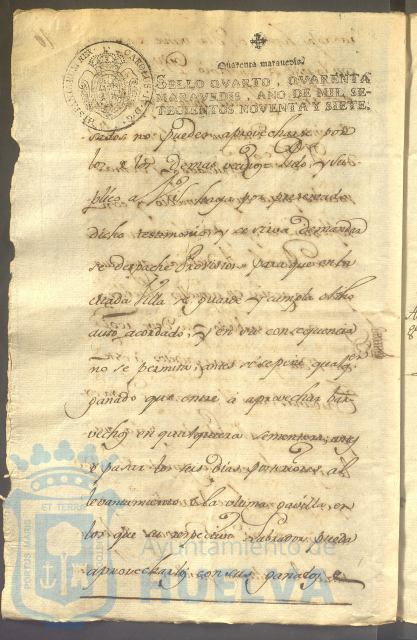 Quarenta maravedis.
SELLO QVARTO, QVARENTA
MARAVEDIS, AÑO DE MIL SE-
TECIENTOS NOVENTA Y SIETE.
CAROLUS IV D.G. HISPANIAR. REX
no pueden aprovecharse por
los Demas vecinos
suplico a haga por presentado
dicho testimonio, y se sirva
se despache Provision para que en la
citada Villa se guarde y cumpla dicho
auto acordado, y en su consequencia
no se permita, antes
ganado que entre a aprovechar
en qualquiera sementera, antes
los seis dias posteriores al
levantamiento de la ultima gavilla, en
los que su respectivo Labrador pueda
aprovecharlos con sus ganados
Ayuntamiento de
HUELVA
PORTUS MARIS ET TERRAE